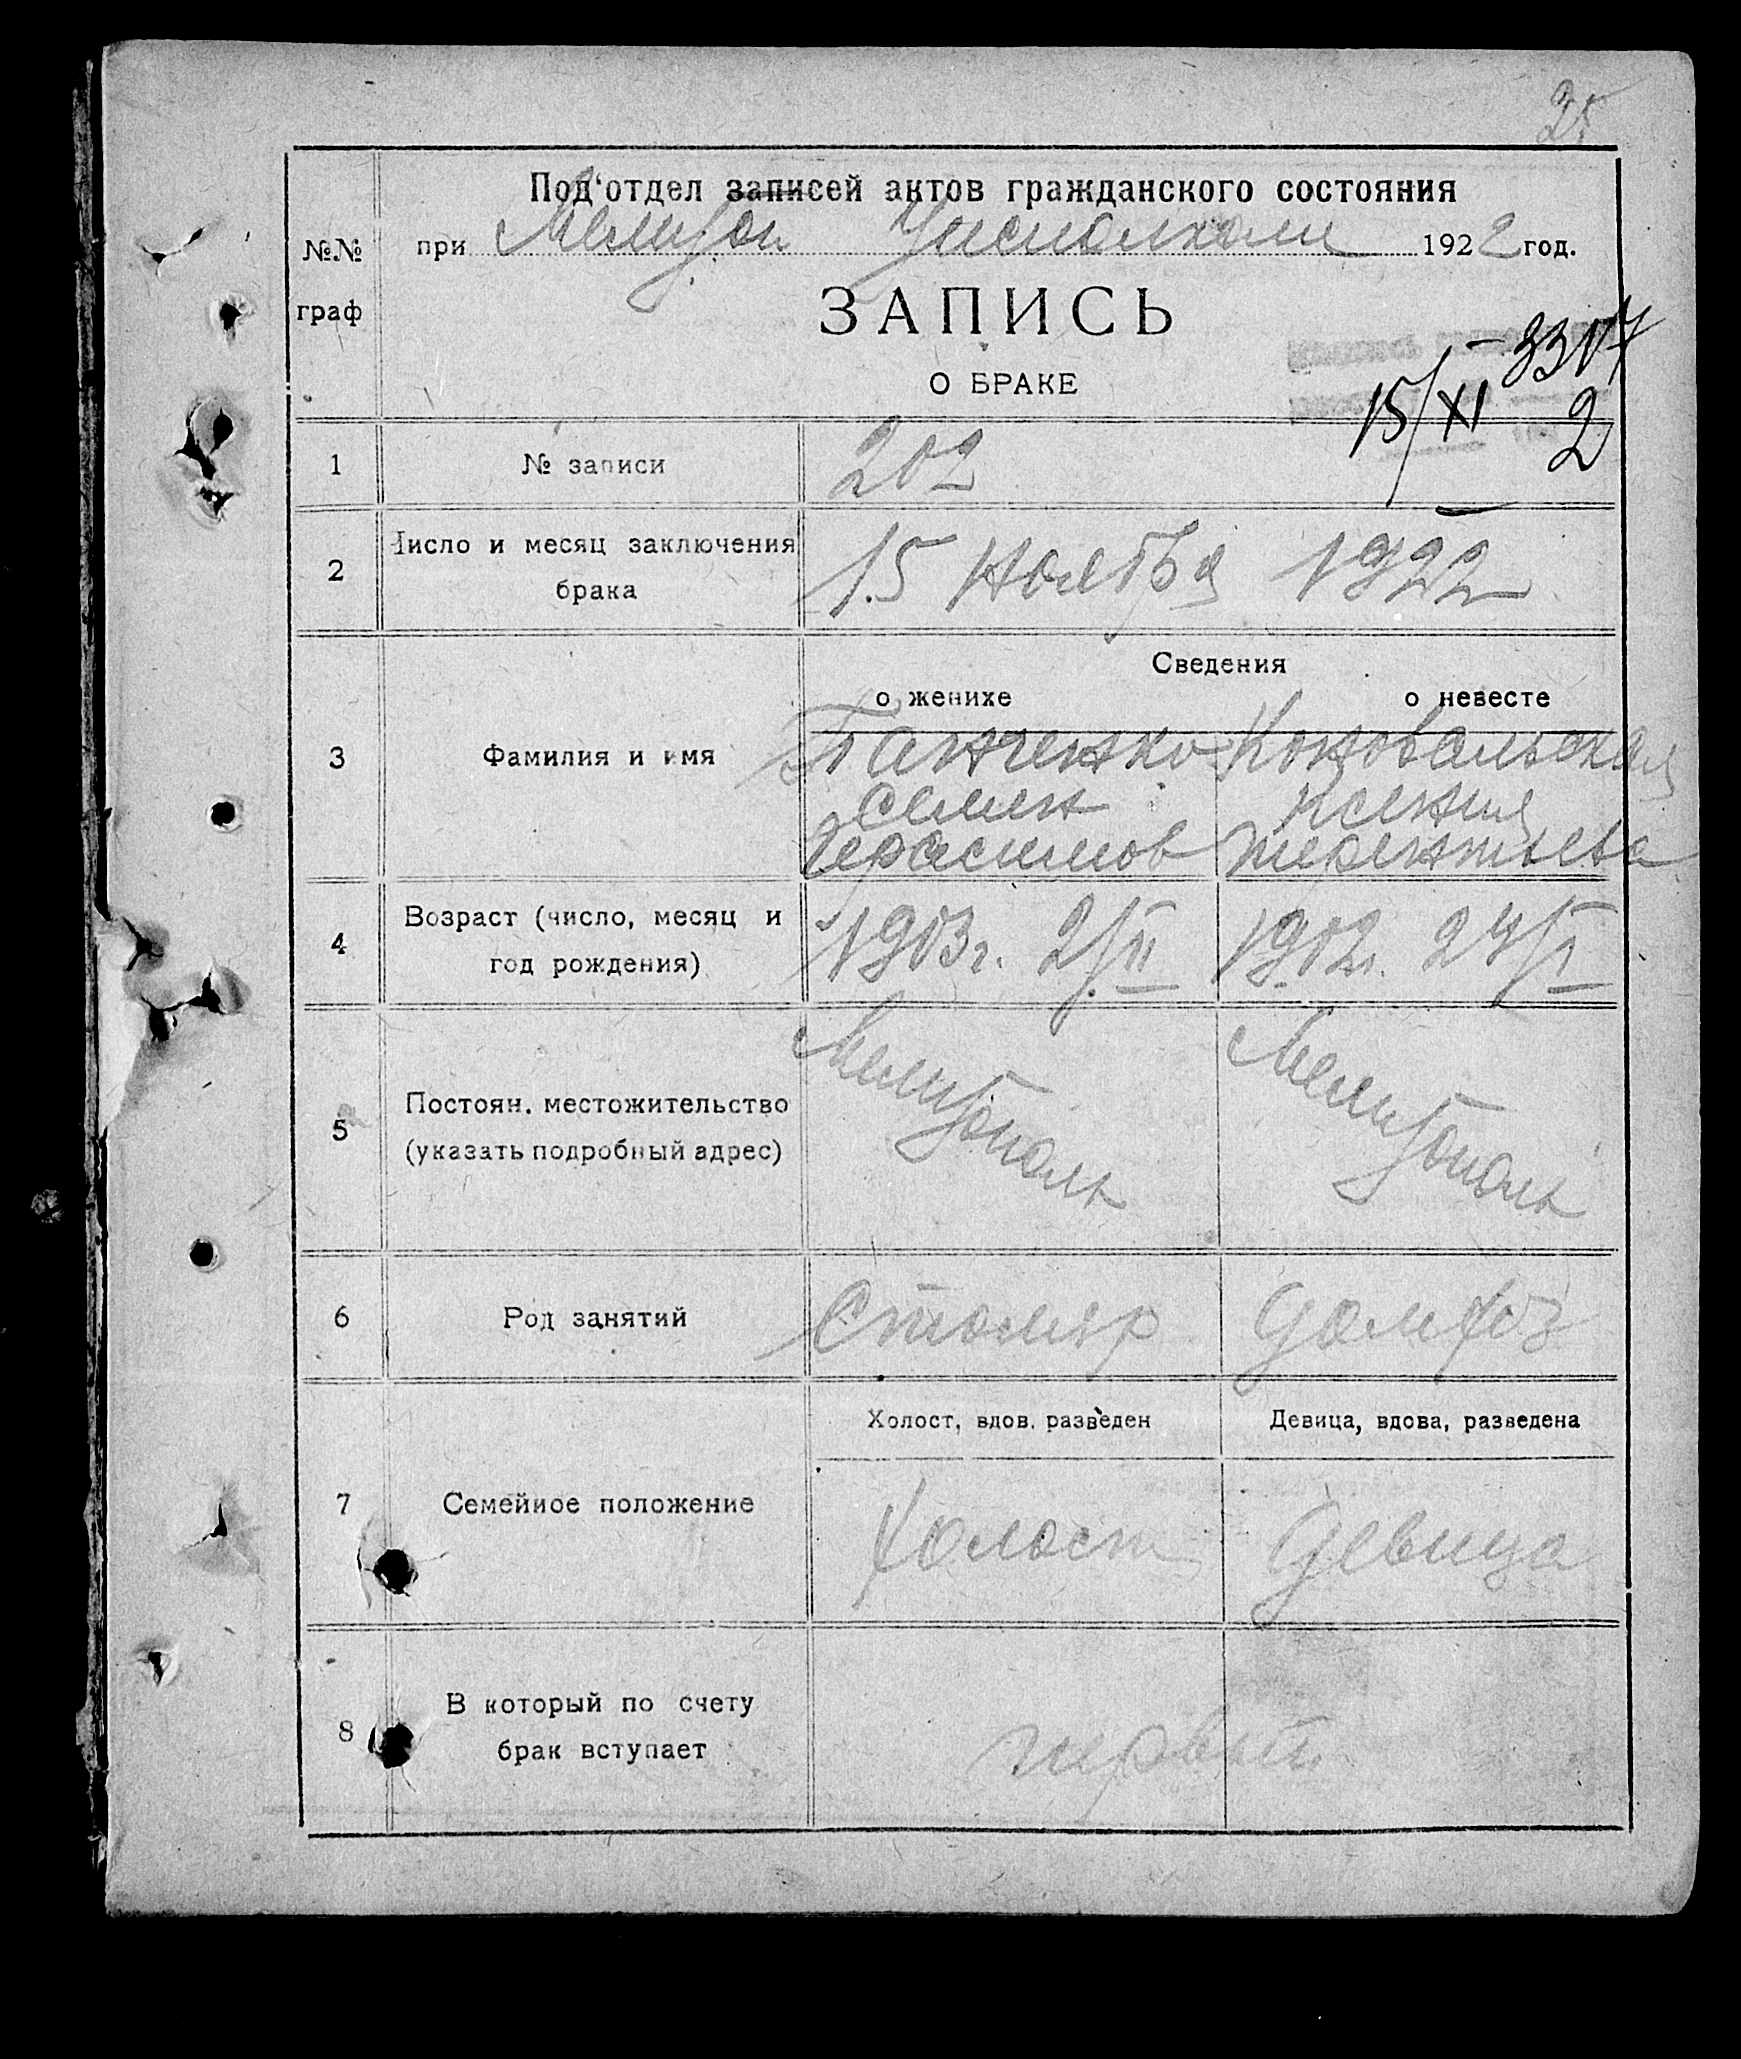 25
Под'отдел записей актов гражданского состояния
при Мелитоп Уисполкоме 1922 год.
№№
граф
ЗАПИСЬ
О БРАКЕ
3307
15/XI 2
1 № записи 202
2 Число и месяц заключения
брака
15 Ноября 1922
Сведения
о женихе о невесте
3 Фамилия и имя
Панченко Коновальская
Семен Ксения
Герасимов Терентьева
4 Возраст (число, месяц и
год рождения)
1903г. 2/II 1902г. 24/I
5 Постоян. местожительство
(указать подробный адрес)
Мелитополь Мелитополь
6 Род занятий Столяр домхоз
Холост, вдов. разведен Девица, вдова, разведена
7 Семейное положение Холост Девица
8 В который по счету
брак вступает
первый